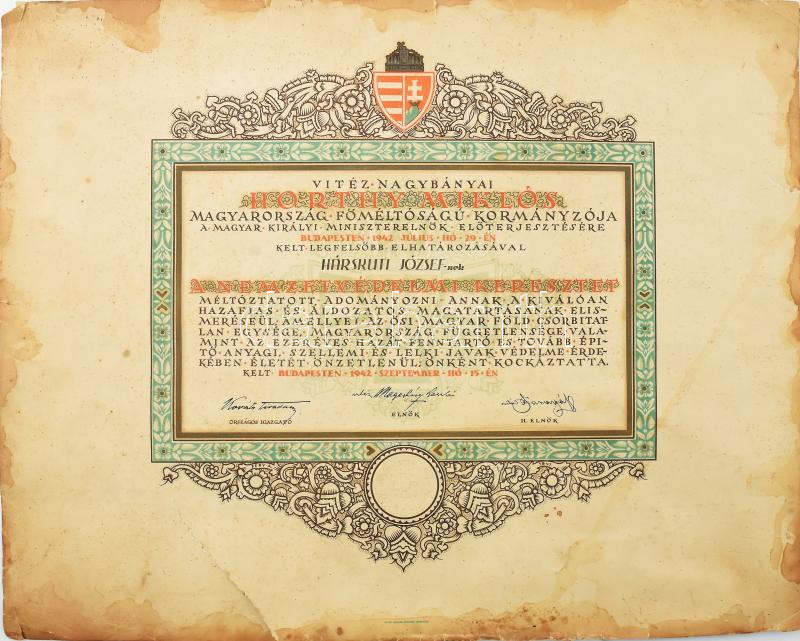 VITÉZ·NAGYBÁNYAI
HORTHY·MIKLÓS
MAGYARORSZÁG·FŐMÉLTÓSÁGÚ·KORMÁNYZÓJA
A·MAGYAR·KIRÁLYI·MINISZTERELNÖK·ELŐTERJESZTÉSÉRE
BUDAPESTEN·1942·JÚLIUS·HÓ·29·ÉN
KELT·LEGFELSŐBB·ELHATÁROZÁSÁVAL
HÁRSKUTI JÓZSEF-nek
A·NEMZETVÉDELMI·KERESZTET
MÉLTÓZTATOTT·ADOMÁNYOZNI·ANNAK·A·KIVÁLÓAN
HAZAFIAS·ÉS·ÁLDOZATOS·MAGATARTÁSÁNAK·ELIS-
MERÉSEÜL·AMELLYEL·AZ·ŐSI·MAGYAR·FÖLD·CSORBÍTAT-
LAN·EGYSÉGE·MAGYARORSZÁG·FÜGGETLENSÉGE·VALA-
MINT·AZ·EZERÉVES·HAZÁT·FENNTARTÓ·ÉS·TOVÁBB·ÉPÍ-
TŐ·ANYAGI,·SZELLEMI·ÉS·LELKI·JAVAK·VÉDELME·ÉRDE-
KÉBEN·ÉLETÉT·ÖNZETLENÜL·ÖNKÉNT·KOCKÁZTATTA.
KELT·BUDAPESTEN·1942·SZEPTEMBER·HÓ·15·ÉN
ORSZÁGOS IGAZGATÓ
ELNÖK
H. ELNÖK